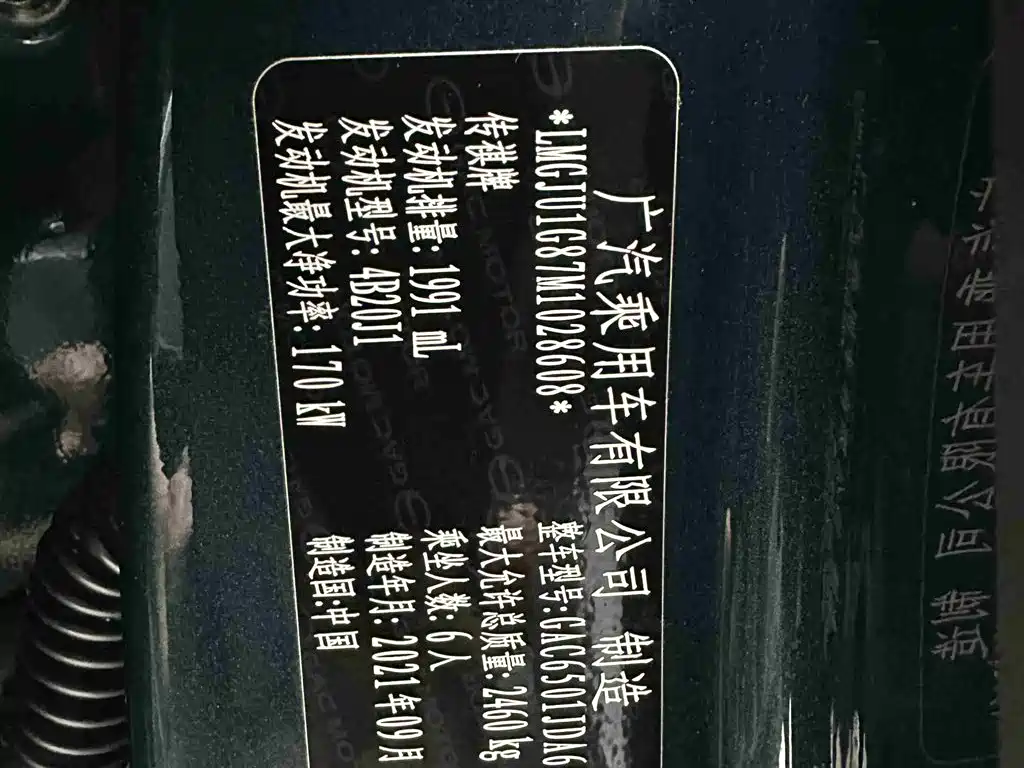 广汽乘用车有限公司 制造
*LMGJU1G87M1028608* 整车型号:GAC6501JDA6
传祺牌 最大允许总质量:2460kg
发动机排量:1991 mL 乘坐人数:6人
发动机型号:4B20J1 制造年月:2021年09月
发动机最大净功率:170kW 制造国:中国